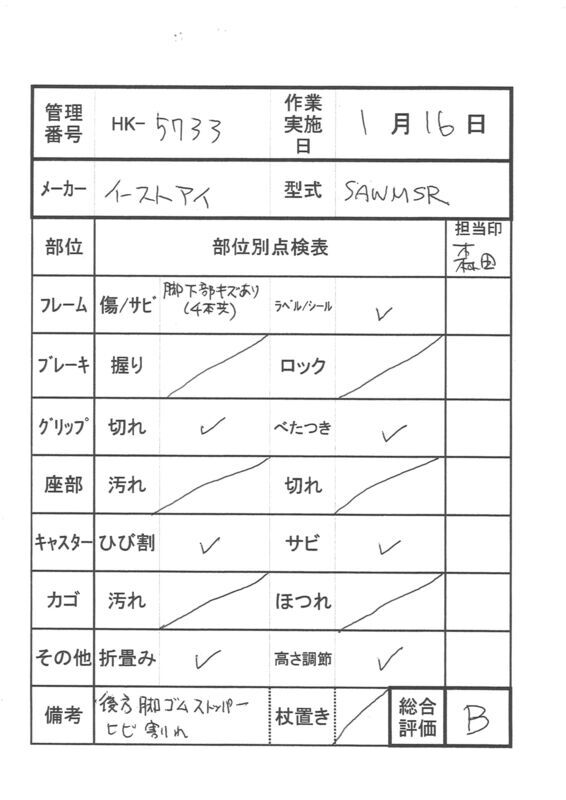 管理番号 HK- 5733 作業実施日 1月16日
メーカー イーストアイ 型式 SAWMSR
部位 部位別点検表 担当印 森田
フレーム 傷/サビ 脚下部キズあり(4本共) ラベル/シール ✓
ブレーキ 握り ロック
グリップ 切れ ✓ べたつき ✓
座部 汚れ 切れ
キャスター ひび割 ✓ サビ ✓
カゴ 汚れ ほつれ
その他 折畳み ✓ 高さ調節 ✓
備考 後方脚ゴムストッパー ヒビ割れ 杖置き 総合評価 B